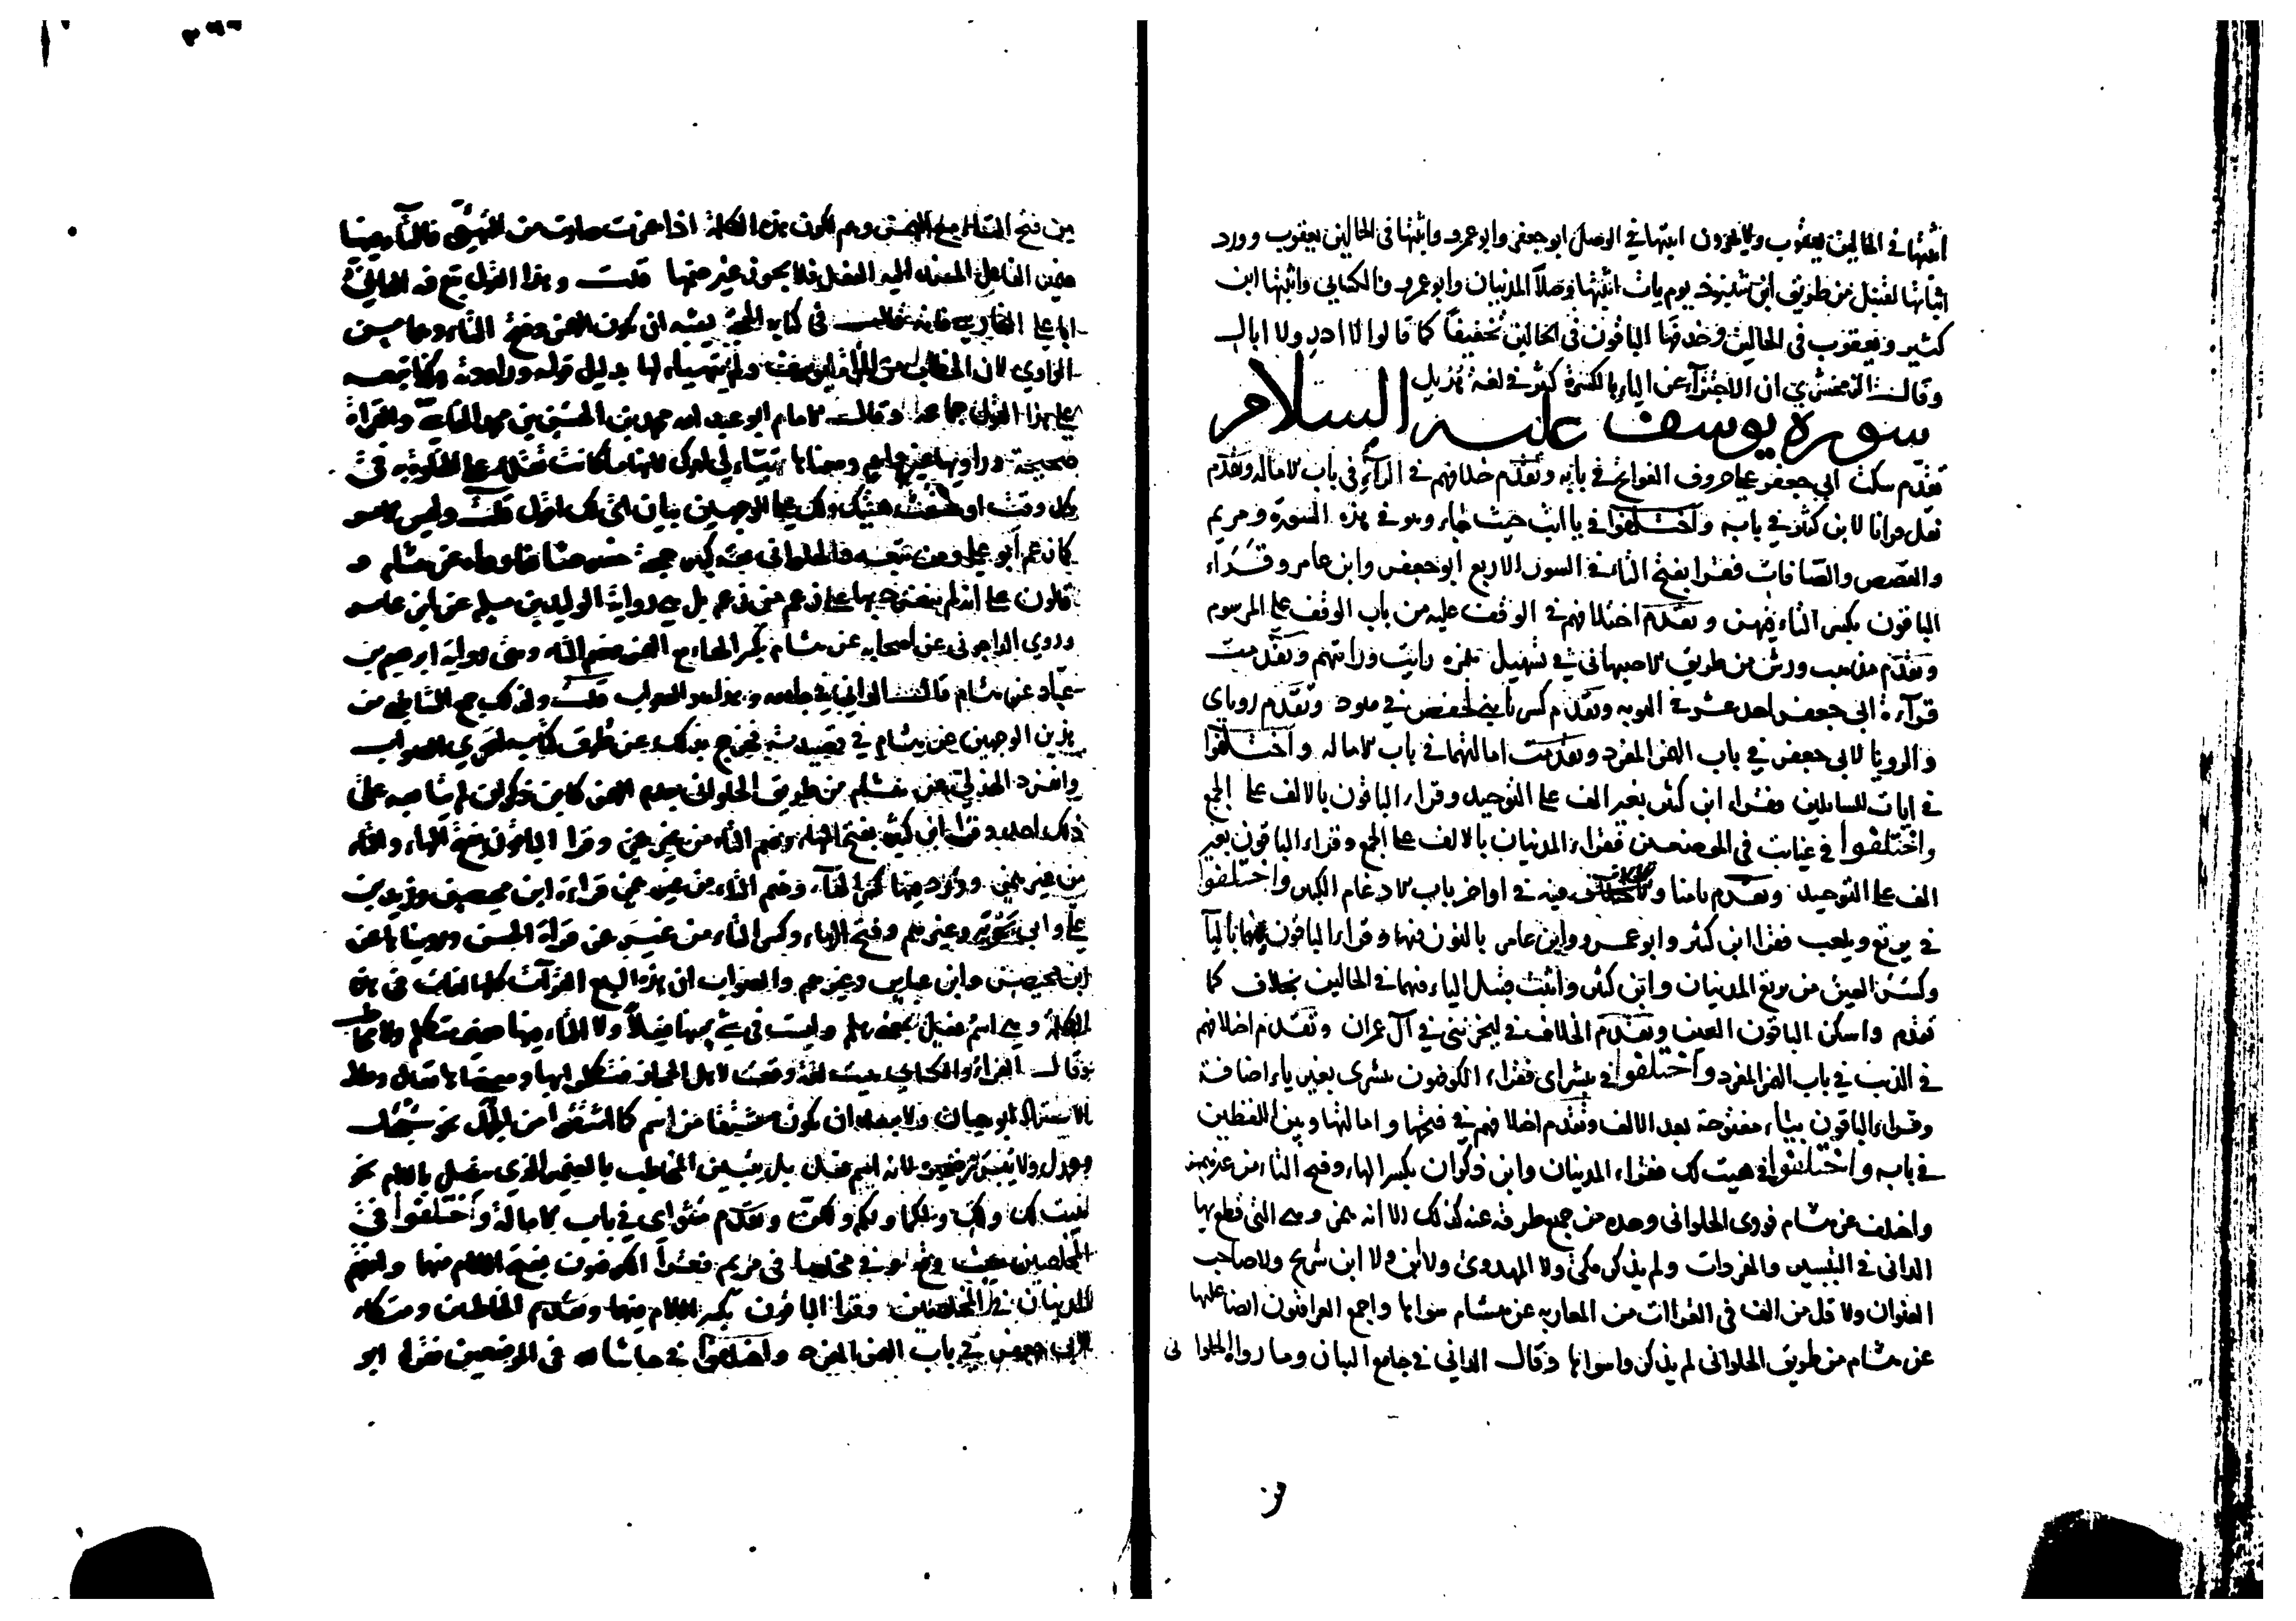 اثبتها في الحالين يعقوب ولا تخزون اثبتها في الوصل ابو جعفر وابو عمرو واثبتها في الحالين يعقوب وورد
اثباتها لقنبل من طريق ابن شنبوذ يوم يات اثبتها وصلا المدنيان وابو عمرو والكسائي واثبتها ابن
كثير ويعقوب في الحالين وحذفها الباقون في الحالين تخفيفا كما قالوا لا ادر ولا ابال
وقال الزمخشري ان الاجتزاء عن الياء بالكسرة كثير في لغة هذيل
سورة يوسف عليه السلام
تقدم سكت ابي جعفر على حروف الفواتح في بابه وتقدم خلافهم في الراء في باب الامالة وتقدم
نقل قرانا لابن كثير في بابه واختلفوا في يا ابت حيث جاء وهو في هذه السورة ومريم
والقصص والصافات فقرا بفتح التاء في السور الاربع ابو جعفر وابن عامر وقراء
الباقون بكسر التاء فيهن وتقدم اختلافهم في الوقف عليه من باب الوقف على المرسوم
وتقدم مذهب ورش من طريق الاصبهاني في تسهيل همزة رايت ورايتهم وتقدمت
قراءة ابي جعفر احد عشر في التوبه وتقدم كسر يا بني لحفص في هود وتقدم روياي
والرويا لابي جعفر في باب الهمز المفرد وتقدمت امالتهما في باب الامالة واختلفوا
في ايات للسايلين فقراء ابن كثير بغير الف على التوحيد وقراء الباقون بالالف على الجمع
واختلفوا في غيابت في الموضعين فقراء المدنيان بالالف على الجمع وقراء الباقون بغير
الف على التوحيد وتقدم تامنا والخلاف فيه في اواخر باب الادغام الكبير واختلفوا
في يرتع ويلعب فقرا ابن كثير وابو عمرو وابن عامر بالنون فيهما وقراء الباقون فيهما باليا
وكسر العين من يرتع المدنيان وابن كثير واثبت قنبل الياء فيهما في الحالين بخلاف كما
تقدم واسكن الباقون العين وتقدم الخلاف في ليحزنني في آل عمران وتقدم اختلافهم
في الذئب في باب الهمز المفرد واختلفوا في بشراى فقراء الكوفيون بشرى بغير ياء اضافة
وقراء الباقون بياء مفتوحة بعد الالف وتقدم اختلافهم في فتحها وامالتها وبين اللفظين
في بابه واختلفوا في هيت لك فقراء المدنيان وابن ذكوان بكسر الهاء وفتح التاء من غير همز
واختلف عن هشام فروى الحلواني وحده من جميع طرقه عنه كذلك الا انه بهمز وهي التي قطع بها
الداني في التيسير والمفردات ولم يذكر مكي ولا المهدوي ولا ابن ولا ابن شريح ولا صاحب
العنوان ولا كل من الف في القراات من المغاربه عن هشام سواها واجمع العراقيون ايضا عليها
عن هشام من طريق الحلواني لم يذكروا سواها وقال الداني في جامع البيان وما رواه الحلواني
من فتح التاء مع الهمزة وهم لكون هذه الكلمة اذا همزت صارت من التهيئ فالتاء فيها
ضمير الفاعل المسند اليه الفعل فلا يجوز غير ضمها قلت وهذا القول تبع فيه الداني
ابا علي الفارسي فانه قال في كتابه الحجة يشبه ان يكون الهمز وفتح التاء وهما من
الراوي لان الخطاب من المراة ليوسف ولم يتهياء لها بدليل قوله وراودته وكذا تبعه
على هذا القول جماعة وقال الامام ابو عبد الله محمد بن الحسين بن محمد الفاسي والقراءة
صحيحة وراويها غير واهم ومعناها تهياء لي امرك لانها ما كانت تقدر على الخلوة به في
كل وقت او حسنت هيئتك ولك على الوجهين بيان اي لك اقول قلت وليس الامر
كما زعم ابو علي ومن تبعه والحلواني ثقة كبير حجة خصوصا فيما رواه عن هشام و
قالون على انه لم ينفرد بها على زعم من زعم بل هي رواية الوليد بن مسلم عن ابن عامر
وروى الداجوني عن اصحابه عن هشام بكسر الهاء مع الهمز وضم التاء وهي رواية ابراهيم بن
عباد عن هشام قال الداني في جامعه وهذا هو الصواب قلت ولذلك جمع الشاطبي بين
هذين الوجهين عن هشام في قصيدته فخرج بذلك عن طرق كتابه لتحري الصواب
وانفرد الهذلي عن هشام من طريق الحلواني بعدم الهمز كابن ذكوان لم يتابعه على
ذلك احد وقرا ابن كثير بفتح الهاء وضم التاء من غير همز وقرا الباقون بفتح الهاء والتاء
من غير همز وورد فيها كسر الهاء وضم التاء من غير همز قراءة ابن محيصن وزيد بن
علي وابي بحرية وغيرهم وفتح الهاء وكسر التاء من غير همز قراة الحسن ورويناها عن
ابن محيصن وابن عباس وغيرهم والصواب ان هذه السبع القراات كلها لغات في هذه
الكلمة وهي اسم فعل بمعنى هلم وليست في شيء منها فعلا ولا التاء فيها ضمير متكلم ولا مخاطب
وقال الفراء والكسائي هي لغة وقعت لاهل الحجاز فتكلموا بها ومعناها تعال وقال
الاستاذ ابو حيان ولا يبعد ان يكون مشتقا من اسم كما اشتقوا من الجمل نحو سبحل
وحمدل ولا يبرز ضميره لانه اسم فعل بل يتبين المخاطب بالضمير الذي يتصل باللام نحو
هيت لك ولك ولكما ولكم ولكن وتقدم مثواى في باب الامالة واختلفوا في
المخلصين حيث وقع وفي مخلصا في مريم فقرا الكوفيون بفتح اللام منها وافقهم
المدنيان في المخلصين وقرا الباقون بكسر اللام فيهما وتقدم الخاطئين ومتكاء
لابي جعفر في باب الهمز المفرد واختلفوا في حاشا لله في الموضعين فقراء ابو